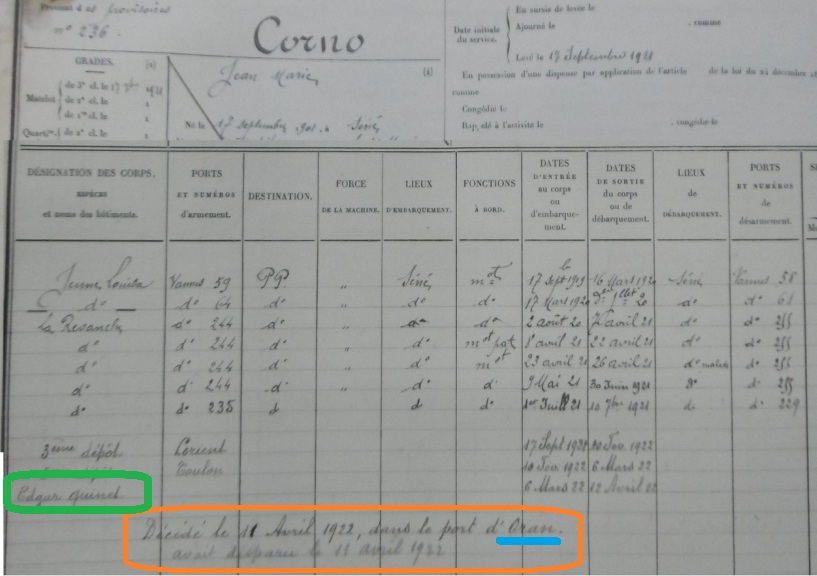 provisoires
n° 236.
Corno
Jean Marie
(b)
GRADES. (a)
Matelot de 3e cl. le 17 7bre 1921
de 2e cl. le
de 1re cl. le
Quart.-m. de 2e cl. le
Né le 17 septembre 1901 à Séné
Date initiale du service.
En sursis de levée le
Ajourné le . comme
Levé le 17 Septembre 1921
En possession d'une dispense par application de l'article de la loi du 24 décembre
comme
Congédié le
Rappelé à l'activité le . congédié le
DÉSIGNATION DES CORPS, ESPÈCES et noms des bâtiments.
PORTS ET NUMÉROS d'armement.
DESTINATION.
FORCE DE LA MACHINE.
LIEUX D'EMBARQUEMENT.
FONCTIONS À BORD.
DATES D'ENTRÉE au corps ou d'embarquement.
DATES DE SORTIE du corps ou de débarquement.
LIEUX de DÉBARQUEMENT.
PORTS ET NUMÉROS de désarmement.
Jeune Louise Vannes 59 P.P. " Séné mot 17 Sept 1919 16 Mars 192 Séné Vannes 58
d° d° 64 d° " d° d° 17 Mars 192 d° d° 61
La Revanche d° 244 d° " d° d° 2 août 20 avril 21 d° d° 255
d° d° 244 d° " d° mot 8 avril 21 22 avril 21 d° d° 255
d° d° 244 d° " d° mot 23 avril 21 26 avril 21 d° malade d° 255
d° d° 244 d° " d° d° 9 Mai 21 30 Juin 1921 d° d° 255
d° d° 235 d° d° d° 1er Juill 21 10 7bre 1921 d° d° 229
3ème dépôt Lorient 17 Sept 1921 10 Fév. 1922
Toulon 10 Fév. 1922 6 Mars 22
Edgar Quinet 6 Mars 22 12 Avril 22
Décédé le 11 Avril 1922, dans le port d'Oran.
avait disparu le 11 avril 1922